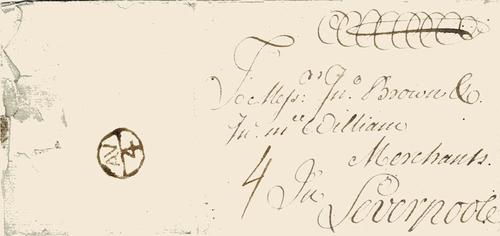 To Messrs. Jno. Brown &
Jno. mcc William
Merchants
4 In
Leverpoole
AV
4